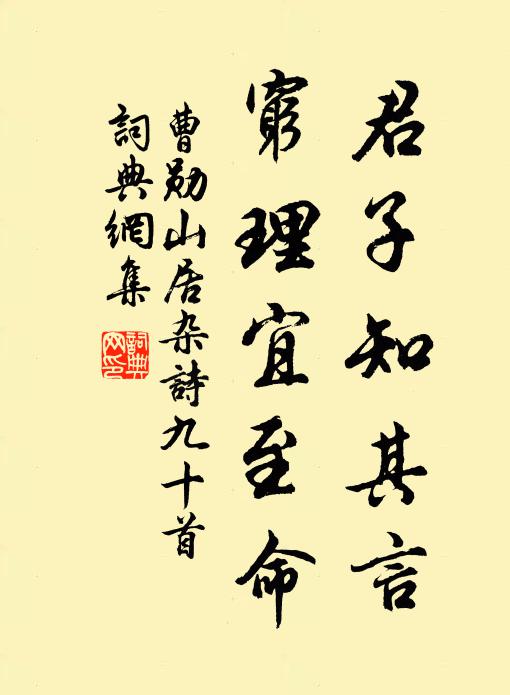 君子知其言
窮理宜至命
曹勋山居杂詩九十首
詞典網集
詞典
网印